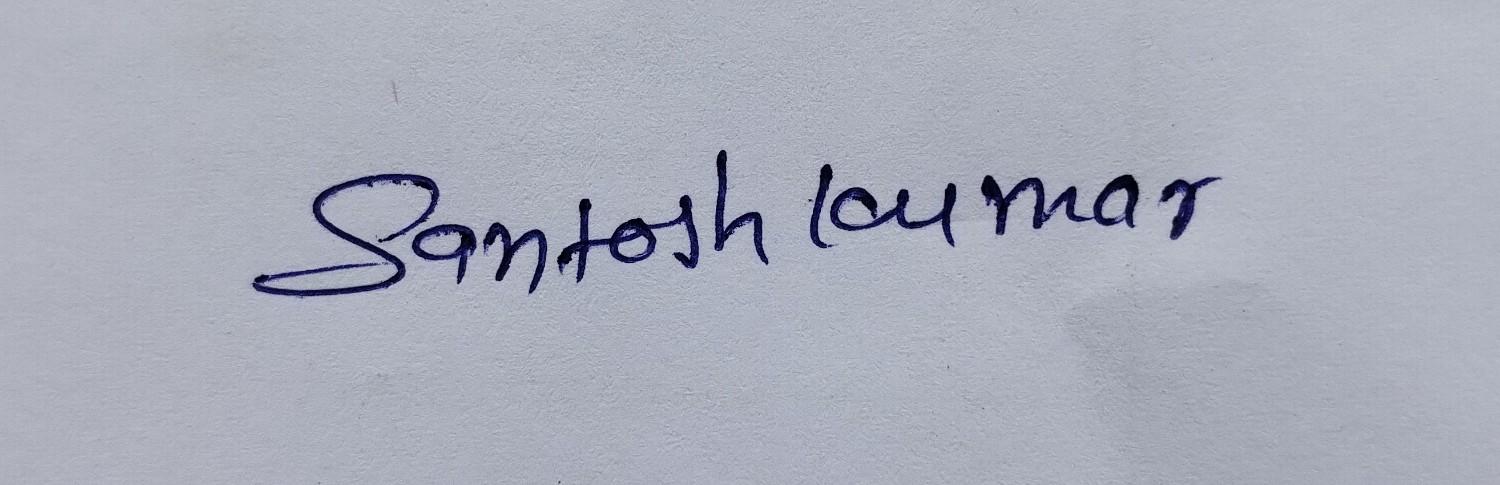 Santosh kumar